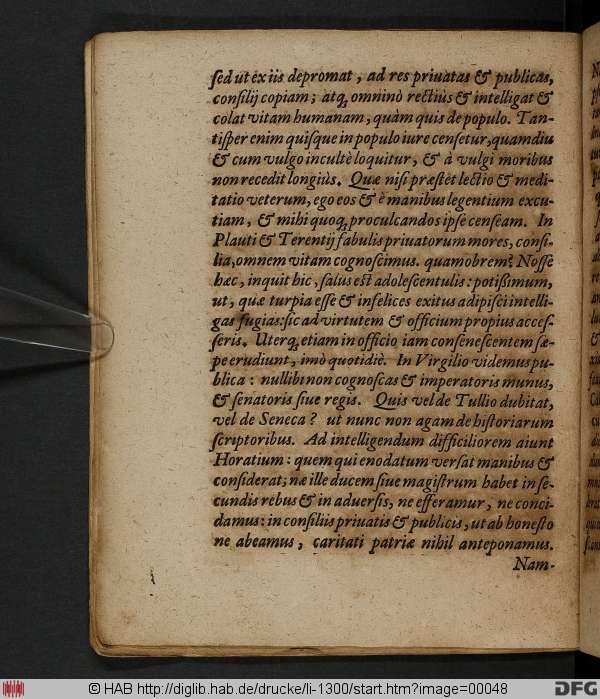 ſed ut ex iis depromat, ad res priuatas & publicas,
conſilij copiam; atq́, omninò rectiùs & intelligat &
colat vitam humanam, quàm quis de populo. Tan-
tiſper enim quiſque in populo iure cenſetur, quamdiu
& cum vulgo incultè loquitur, & à vulgi moribus
non recedit longiùs. Quæ niſi præſtèt lectio & medi-
tatio veterum, ego eos & è manibus legentium excu-
tiam, & mihi quoq́, proculcandos ipſe cenſeam. In
Plauti & Terentij fabulis priuatorum mores, conſi-
lia, omnem vitam cognoſcimus. quamobrem? Noſſe
hæc, inquit hic, ſalus eſt adoleſcentulis: potißimum,
ut, quæ turpia eſſe & infelices exitus adipiſci intelli-
gas fugias: ſic ad virtutem & officium propius acceſ-
ſeris. Uterq́, etiam in officio iam conſeneſcentem ſæ-
pe erudiunt, imò quotidiè. In Virgilio videmus pu-
blica: nullibi non cognoſcas & imperatoris munus,
& ſenatoris ſiue regis. Quis vel de Tullio dubitat,
vel de Seneca? ut nunc non agam de hiſtoriarum
ſcriptoribus. Ad intelligendum difficiliorem aiunt
Horatium: quem qui enodatum verſat manibus &
conſiderat; næ ille ducem ſiue magiſtrum habet in ſe-
cundis rebus & in aduerſis, ne efferamur, ne conci-
damus: in conſiliis priuatis & publicis, ut ab honeſto
ne abeamus, caritati patriæ nihil anteponamus.
Nam-
© HAB http://diglib.hab.de/drucke/li-1300/start.htm?image=00048
DFG